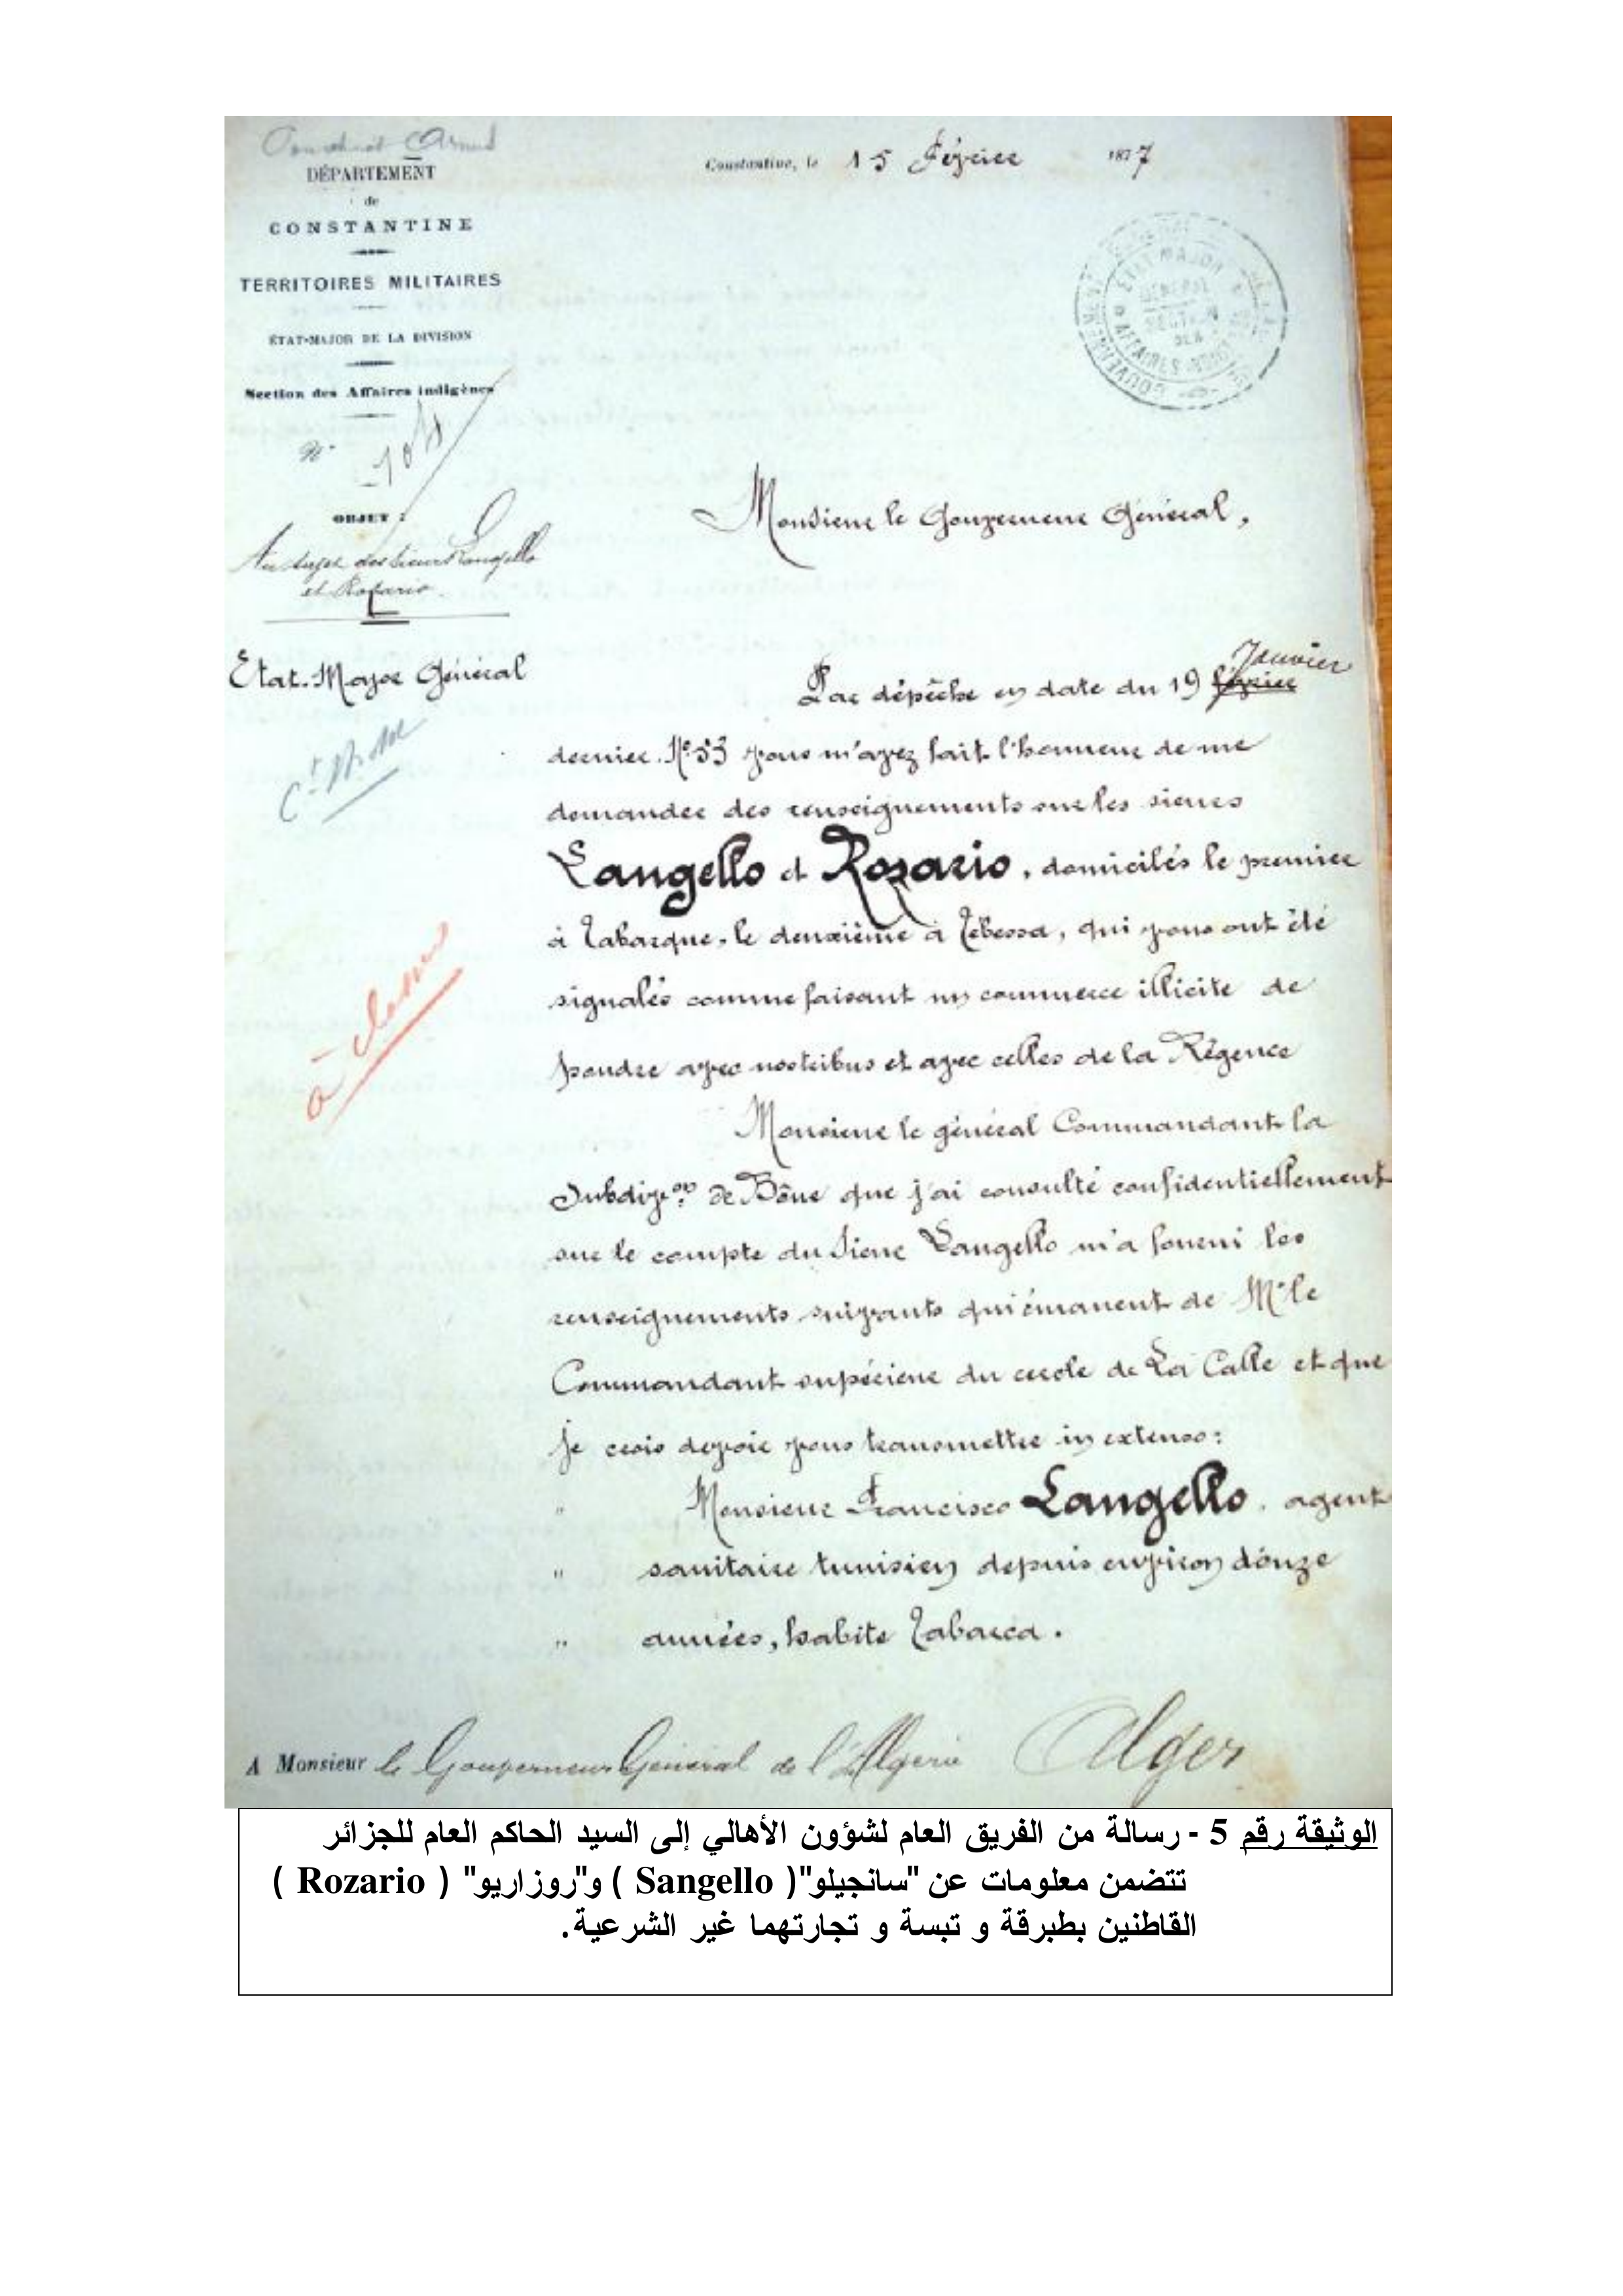 DÉPARTEMENT
de
CONSTANTINE
TERRITOIRES MILITAIRES
ÉTAT-MAJOR DE LA DIVISION
Section des Affaires indigènes
N°
OBJET :
Au sujet des sieurs Langello
et Rozario.
Etat-Major Général
à classer
Constantine, le 15 Février 1877
ETAT MAJOR
GÉNÉRAL
Monsieur le Gouverneur Général,
Par dépêche en date du 19 février Janvier
dernier. N° 53 vous m'avez fait l'honneur de me
demander des renseignements sur les sieurs
Langello et Rozario, domiciliés le premier
à Tabarque, le deuxième à Tébessa, qui vous ont été
signalés comme faisant un commerce illicite de
poudre avec nos tribus et avec celles de la Régence
Monsieur le général Commandant la
Subdivon de Bône que j'ai consulté confidentiellement
sur le compte du Sieur Langello m'a fourni les
renseignements suivants qui émanent de Mr le
Commandant supérieur du cercle de La Calle et que
je crois devoir vous transmettre in extenso:
" Monsieur Francisco Langello, agent
" sanitaire tunisien depuis environ douze
" années, habite Tabarca.
A Monsieur le Gouverneur Général de l'Algérie Alger
الوثيقة رقم 5 - رسالة من الفريق العام لشؤون الأهالي إلى السيد الحاكم العام للجزائر
تتضمن معلومات عن "سانجيلو"( Sangello ) و"روزاريو" ( Rozario )
القاطنين بطبرقة و تبسة و تجارتهما غير الشرعية.